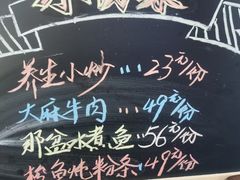 养生小炒...23元/份
大麻牛肉...49元/份
那盆水煮鱼...56元/份
鱼炖粉条...49元/份